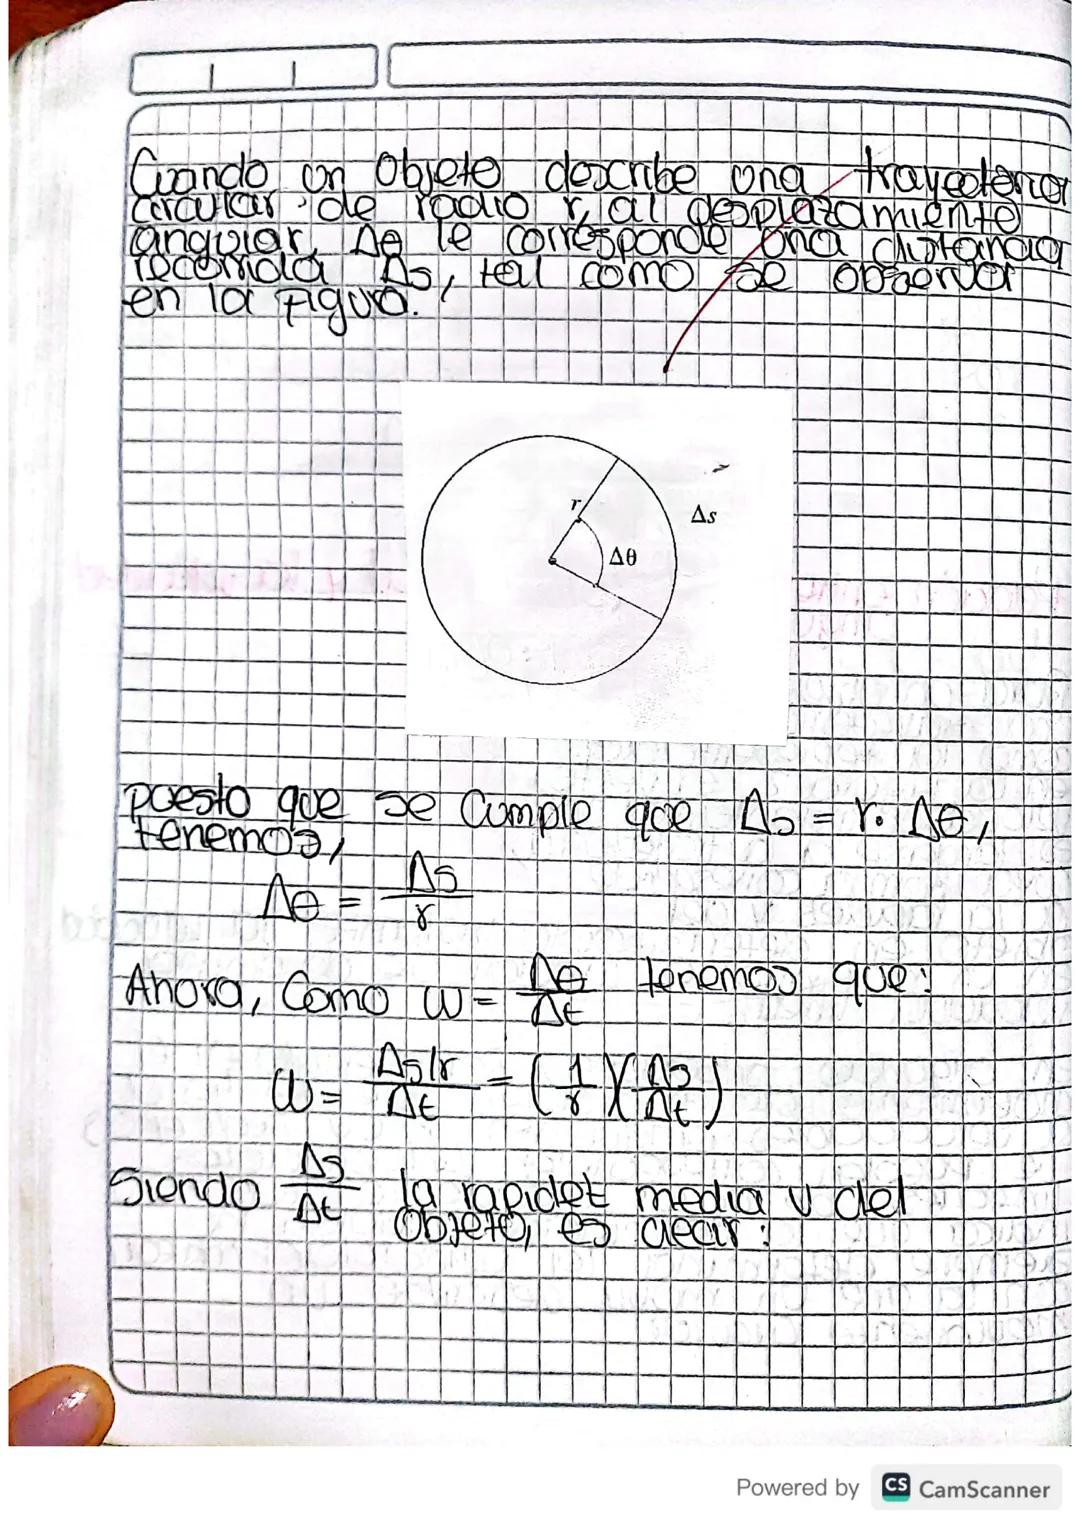 Cuando un Objeto describe una trayectoria
circular de radio r, al desplazamiento
angular, Δθ le corresponde una distancia
recorrida Δs, tal como se observa
en la figura.
r
Δs
Δθ
puesto que se Cumple que Δs = r. Δθ,
tenemos,
Δθ = Δs/r
Ahora, Como w = Δθ/Δt tenemos que:
W = Δs/r / Δt = (1/r)(Δs/Δt)
Siendo Δs/Δt la rapidet media v del
Objeto, es decir:
Powered by CS CamScanner